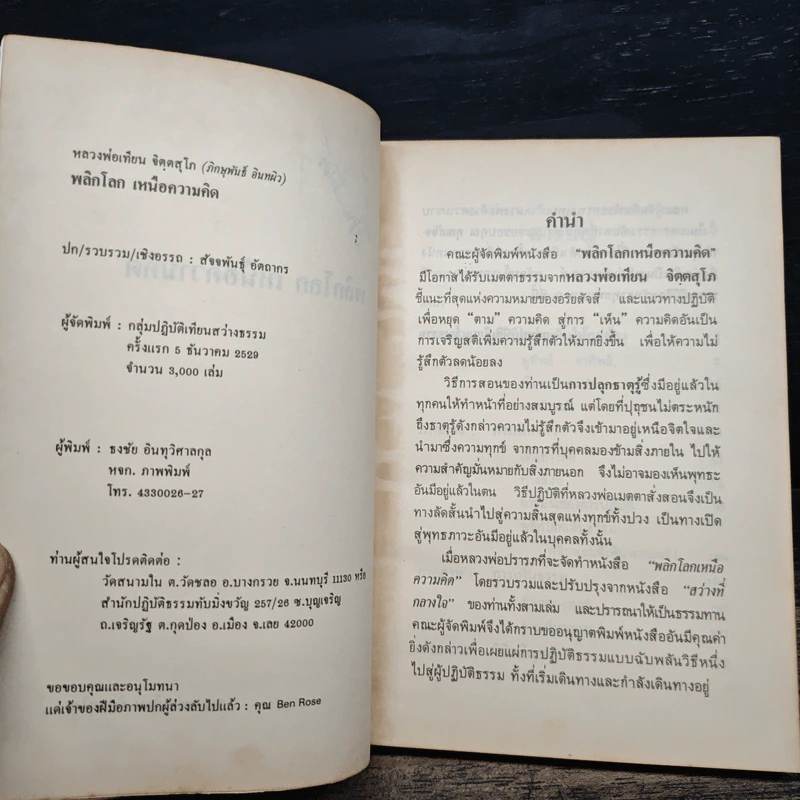 หลวงพ่อเทียน จิตฺตสุโภ (ภิกษุพันธ์ อินทผิว)
พลิกโลก เหนือความคิด
ปก/รวบรวม/เชิงอรรถ : สัจจพันธุ์ อัตถากร
ผู้จัดพิมพ์ : กลุ่มปฏิบัติเทียนสว่างธรรม
ครั้งแรก 5 ธันวาคม 2529
จำนวน 3,000 เล่ม
ผู้พิมพ์ : ธงชัย อินทุวิศาลกุล
หจก. ภาพพิมพ์
โทร. 4330026-27
ท่านผู้สนใจโปรดติดต่อ :
วัดสนามใน ต.วัดชลอ อ.บางกรวย จ.นนทบุรี 11130 หรือ
สำนักปฏิบัติธรรมทับมิ่งขวัญ 257/26 ซ.บุญเจริญ
ถ.เจริญรัฐ ต.กุดป่อง อ.เมือง จ.เลย 42000
ขอขอบคุณและอนุโมทนา
แด่เจ้าของฝีมือภาพปกผู้ล่วงลับไปแล้ว : คุณ Ben Rose
คำนำ
คณะผู้จัดพิมพ์หนังสือ “พลิกโลกเหนือความคิด”
มีโอกาสได้รับเมตตาธรรมจากหลวงพ่อเทียน จิตฺตสุโภ
ชี้แนะที่สุดแห่งความหมายของอริยสัจสี่ และแนวทางปฏิบัติ
เพื่อหยุด “ตาม” ความคิด สู่การ “เห็น” ความคิดอันเป็น
การเจริญสติเพิ่มความรู้สึกตัวให้มากยิ่งขึ้น เพื่อให้ความไม่
รู้สึกตัวลดน้อยลง
วิธีการสอนของท่านเป็นการปลุกธาตุรู้ซึ่งมีอยู่แล้วใน
ทุกคนให้ทำหน้าที่อย่างสมบูรณ์ แต่โดยที่ปุถุชนไม่ตระหนัก
ถึงธาตุรู้ดังกล่าวความไม่รู้สึกตัวจึงเข้ามาอยู่เหนือจิตใจและ
นำมาซึ่งความทุกข์ จากการที่บุคคลมองข้ามสิ่งภายใน ไปให้
ความสำคัญมั่นหมายกับสิ่งภายนอก จึงไม่อาจมองเห็นพุทธะ
อันมีอยู่แล้วในตน วิธีปฏิบัติที่หลวงพ่อเมตตาสั่งสอนจึงเป็น
ทางลัดสั้นนำไปสู่ความสิ้นสุดแห่งทุกข์ทั้งปวง เป็นทางเปิด
สู่พุทธภาวะอันมีอยู่แล้วในบุคคลทั้งนั้น
เมื่อหลวงพ่อปรารภที่จะจัดทำหนังสือ “พลิกโลกเหนือ
ความคิด” โดยรวบรวมและปรับปรุงจากหนังสือ “สว่างที่
กลางใจ” ของท่านทั้งสามเล่ม และปรารถนาให้เป็นธรรมทาน
คณะผู้จัดพิมพ์จึงได้กราบขออนุญาตพิมพ์หนังสืออันมีคุณค่า
ยิ่งดังกล่าวเพื่อเผยแผ่การปฏิบัติธรรมแบบฉับพลันวิธีหนึ่ง
ไปสู่ผู้ปฏิบัติธรรม ทั้งที่เริ่มเดินทางและกำลังเดินทางอยู่